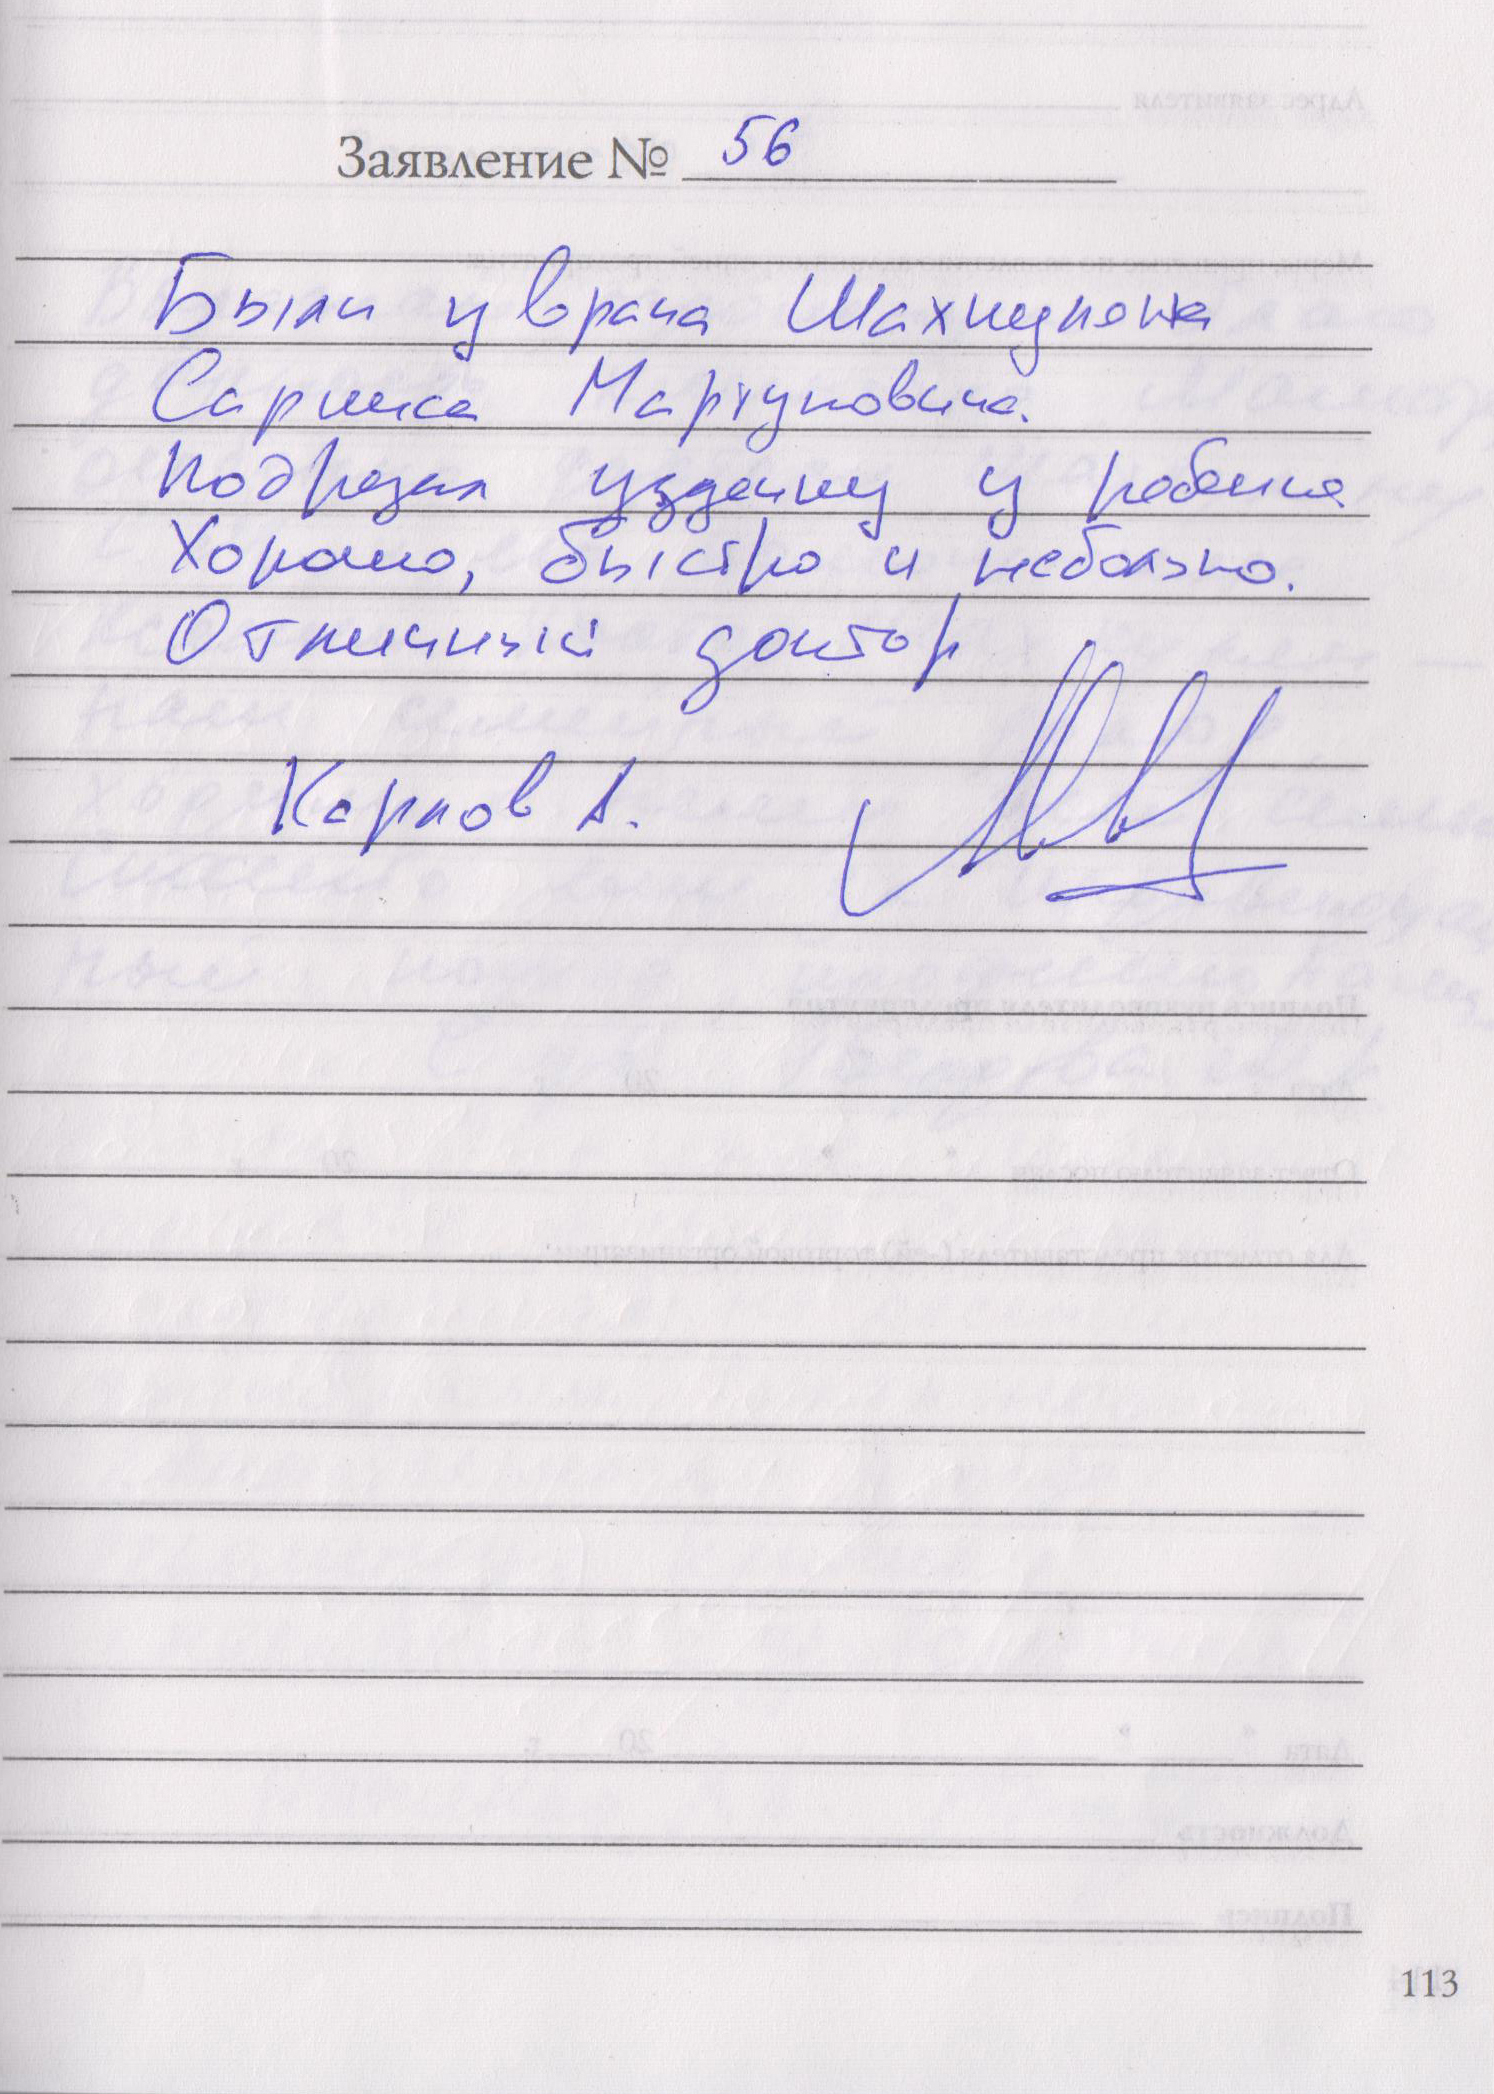 Заявление № 56
Были у врача Шахкуляна
Саркиса Мартуновича.
Подрезал уздечку у ребенка
Хорошо, быстро и небольно.
Отличный доктор
Карпов А.
113